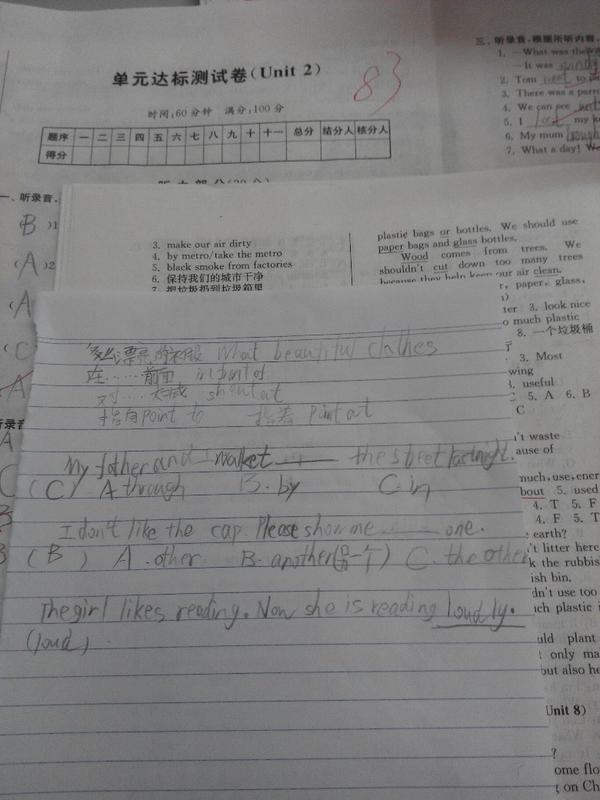 单元达标测试卷(Unit 2)
83
时间:60分钟 满分:100分
题序 一 二 三 四 五 六 七 八 九 十 十一 总分 结分人 核分人
得分
三、听录音,根据所听内容,
1. —What was the
—It was windy
2. Tom
3. There was a parr
4. We can see
5. I
6. My mum
7. What a day! We
一、听录音,
B
A
A
C
A
3. make our air dirty
4. by metro/take the metro
5. black smoke from factories
6. 保持我们的城市干净
7. 把垃圾扔到垃圾箱里
plastic bags or bottles. We should use
paper bags and glass bottles.
Wood comes from trees. We
shouldn't cut down too many trees
because they help keep our air clean.
r, paper, glass,
ter 3. look nice
o much plastic
8. 一个垃圾桶
3. Most
wing
useful
5. A 6. B
C
多么漂亮的衣服 What beautiful clothes
在……前面 in front of
对……大喊 shout at
指向 point to 指着 point at
My father and I walket the street last night.
(C) A through B. by C in
I don't like the cap. Please show me one.
(B) A. other B. another C. the other
The girl likes reading. Now she is reading loudly.
(loud)
n't waste
ause of
much, use, ener
bout 5. used
4. T 5. F
4. F 5. T
earth?
't litter here
k the rubbis
ish bin.
dn't use too
ch plastic
uld plant
t only ma
but also he
Unit 8)
?
ome flo
on Ch